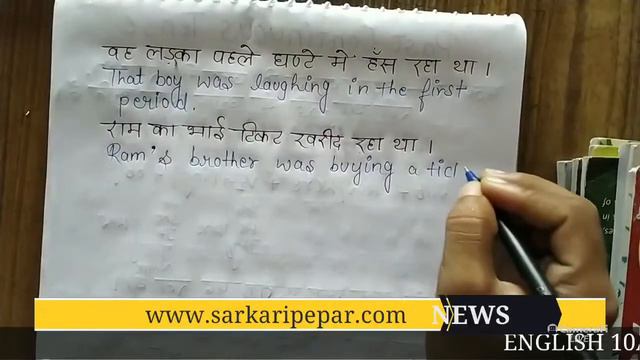 वह लड़का पहले घण्टे में हँस रहा था ।
That boy was laughing in the first
period.
राम का भाई टिकट खरीद रहा था ।
Ram's brother was buying a tic
www.sarkaripepar.com NEWS
ENGLISH 10